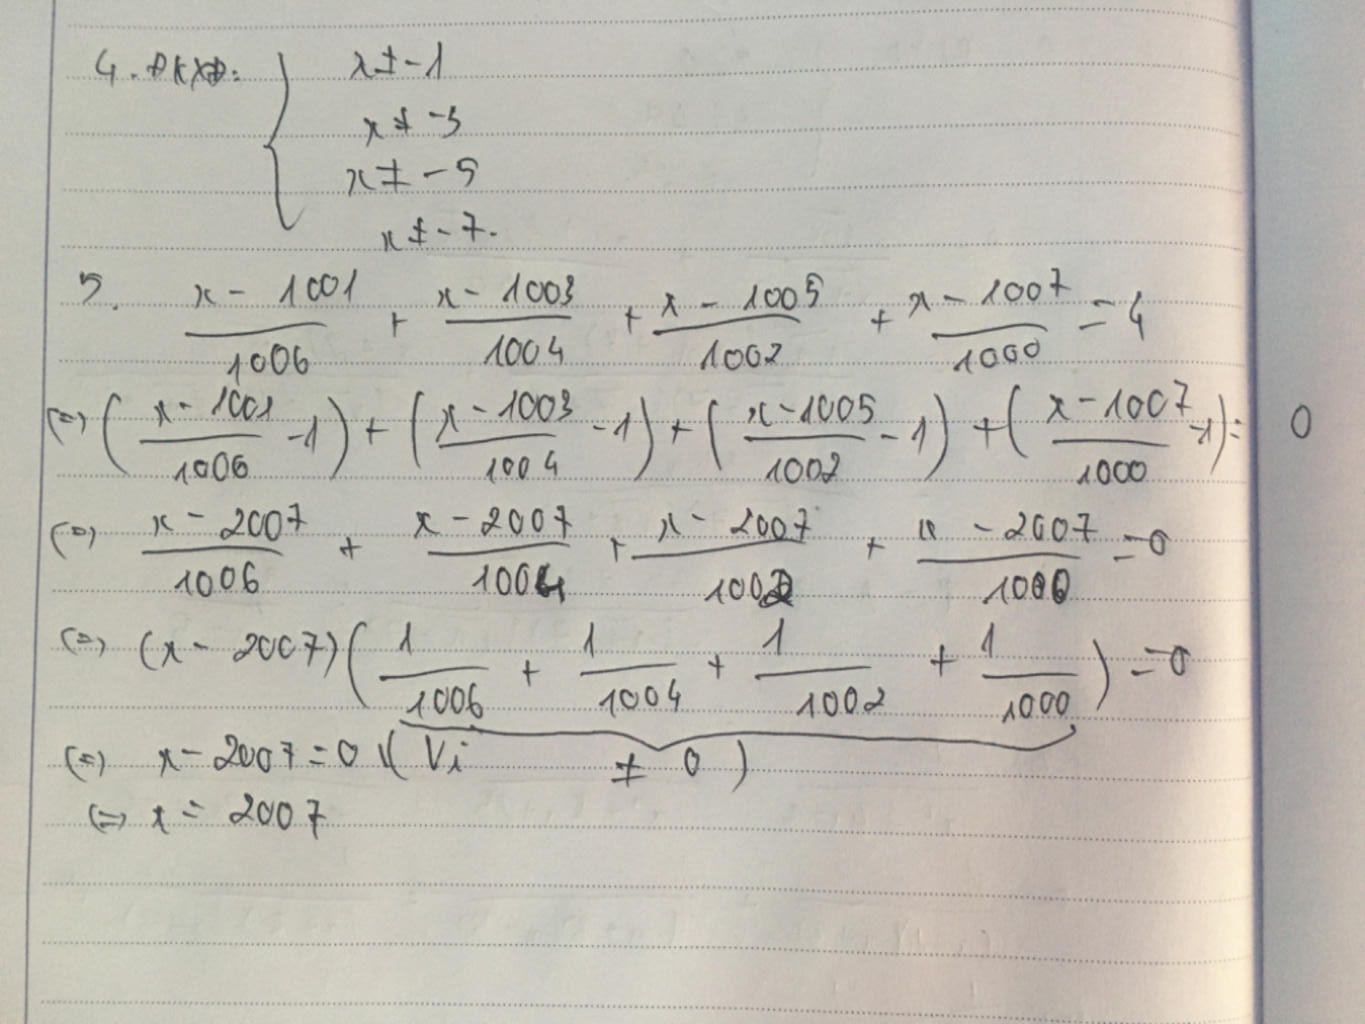 4. ĐKXĐ: { x ≠ -1
x ≠ -3
x ≠ -5
x ≠ -7.
5. (x - 1001)/1006 + (x - 1003)/1004 + (x - 1005)/1002 + (x - 1007)/1000 = 4
(=) ((x - 1001)/1006 - 1) + ((x - 1003)/1004 - 1) + ((x - 1005)/1002 - 1) + ((x - 1007)/1000 - 1) = 0
(=) (x - 2007)/1006 + (x - 2007)/1004 + (x - 2007)/1002 + (x - 2007)/1000 = 0
(=) (x - 2007)(1/1006 + 1/1004 + 1/1002 + 1/1000) = 0
(=) x - 2007 = 0 (Vì ≠ 0)
(=) x = 2007